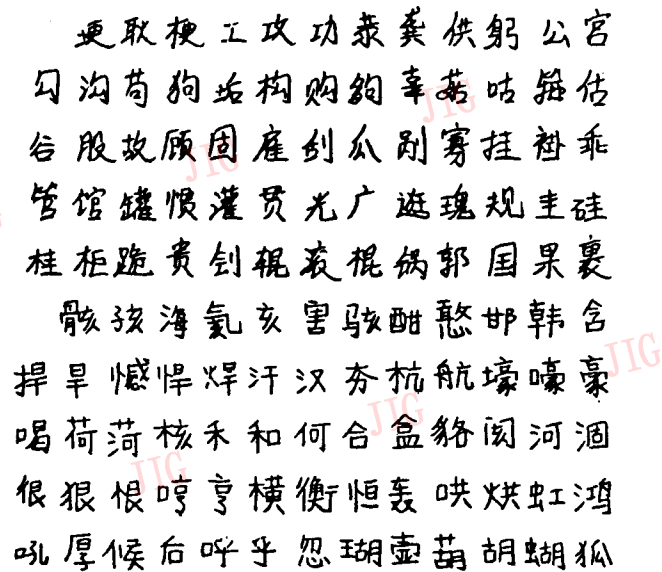 埂耿梗工攻功恭龚供躬公宫
勾沟苟狗垢构购够辜菇咕箍估
谷股故顾固雇刮瓜剐寡挂褂乖
管馆罐惯灌贯光广逛瑰规圭硅
桂柜跪贵刽辊滚棍锅郭国果裹
骸孩海氦亥害骇酣憨邯韩含
捍旱憾悍焊汗汉夯杭航壕嚎豪
喝荷菏核禾和何合盒貉阂河涸
很狠恨哼亨横衡恒轰哄烘虹鸿
吼厚候后呼乎忽瑚壶葫胡蝴狐
JIG
JIG
JIG
JIG
JIG